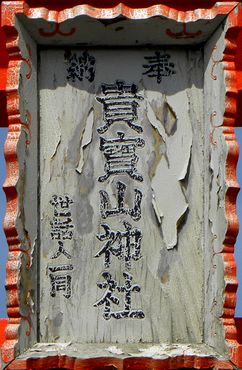 奉納
貴寶山神社
世話人一同